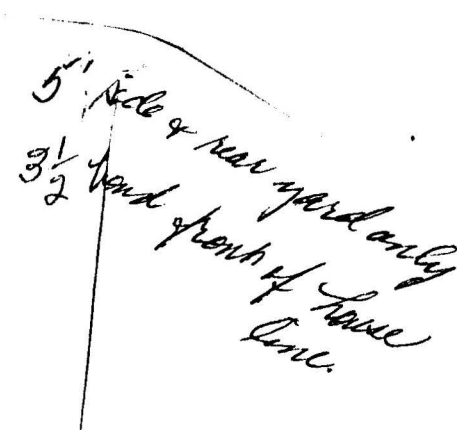 5' side & rear yard only
3 1/2 front of house
line.